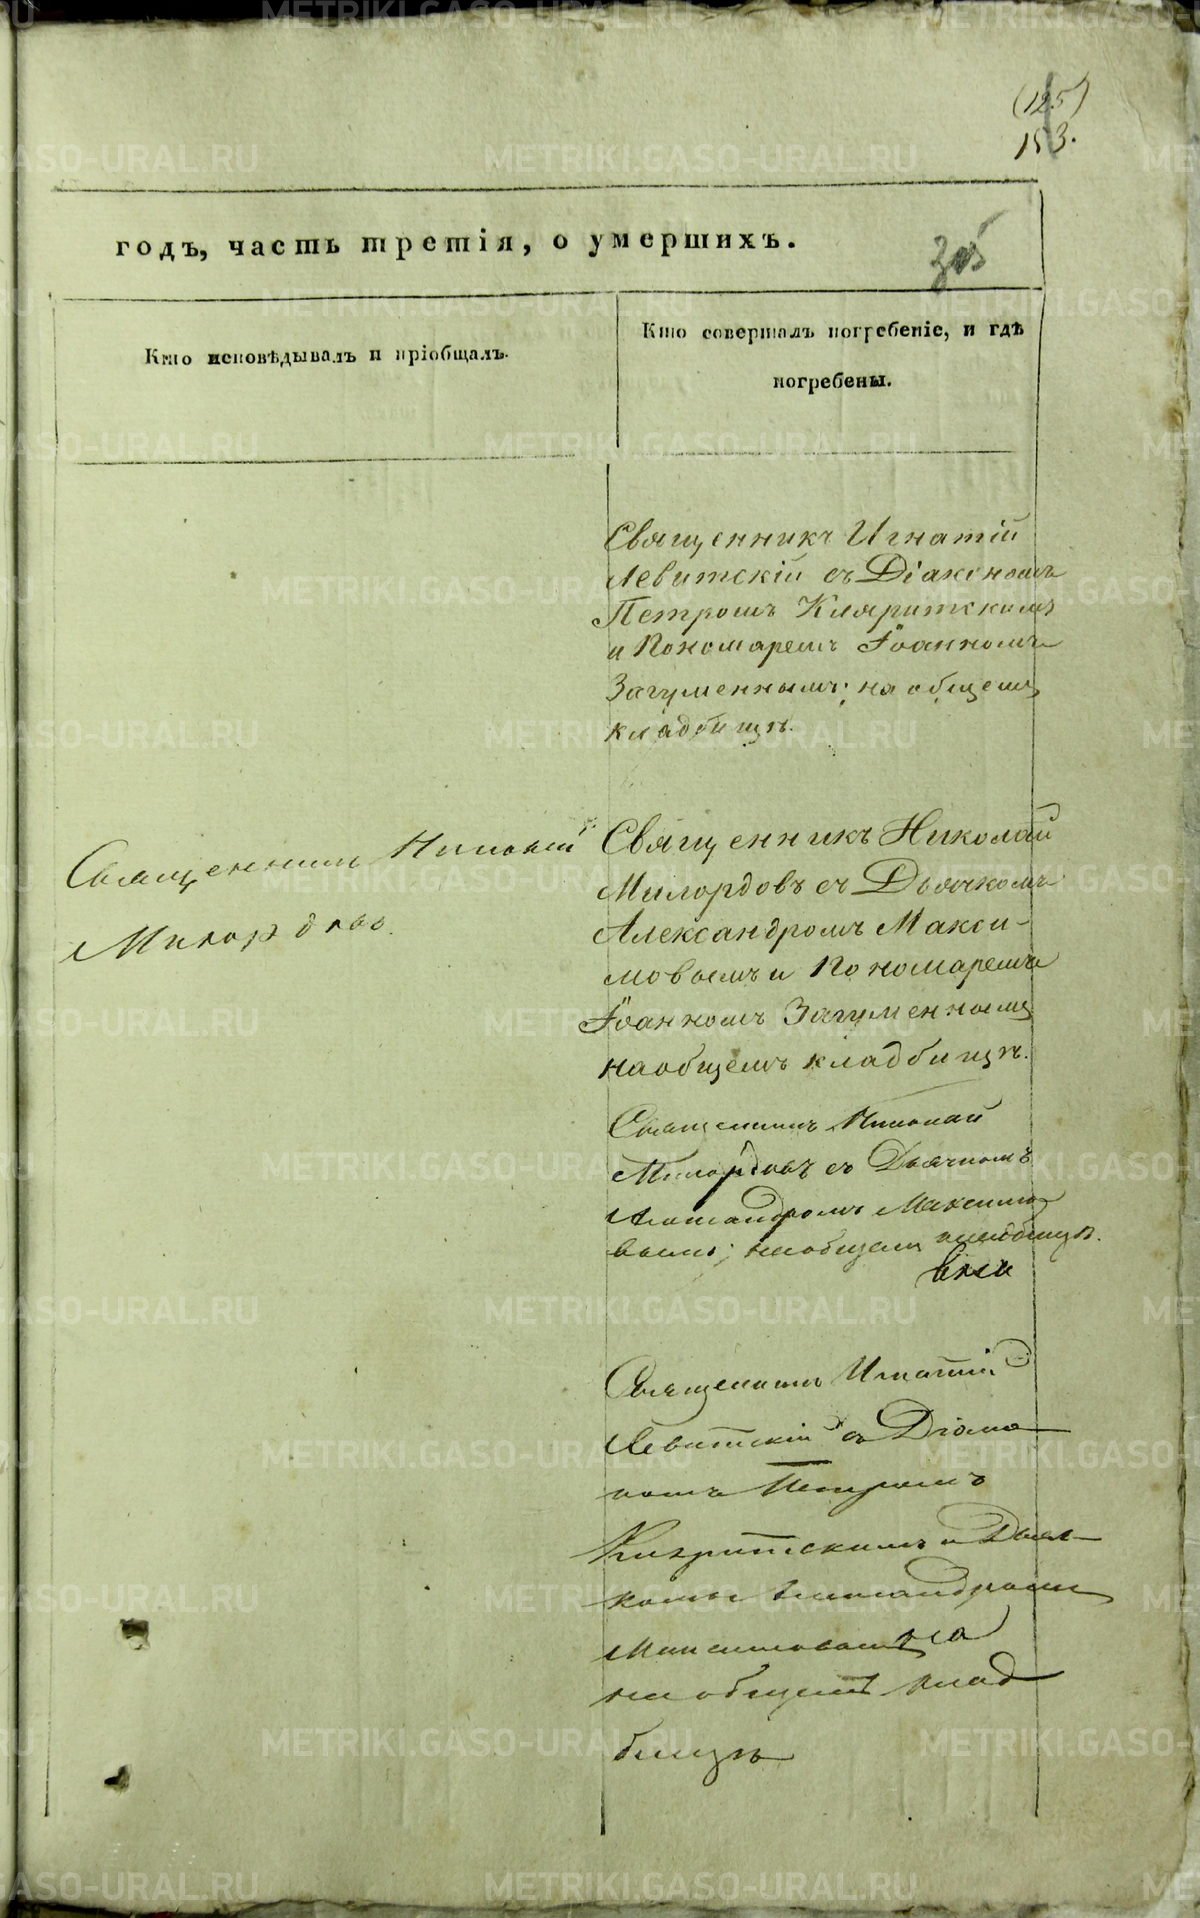 (125)
153.
годъ, часть третія, о умершихъ.
305
Кто исповѣдывалъ и пріобщалъ.
Кто совершалъ погребеніе, и гдѣ
погребены.
Священникъ Игнатій
Левитскій съ Діакономъ
Петромъ Кляритскимъ
и Пономаремъ Іоанномъ
Загуменнымъ; на общемъ
кладбищѣ.
Священникъ Николай
Милордовъ.
Священникъ Николай
Милордовъ съ Дьячкомъ
Александромъ Макси-
мовымъ и Пономаремъ
Іоанномъ Загуменнымъ
на общемъ кладбищѣ.
Священникъ Николай
Милордовъ съ Дьячкомъ
Александромъ Максимо
вымъ; на общемъ кладбищѣ.
Священникъ Игнатій
Левитскій съ Діако
номъ Петромъ
Кляритскимъ и Дьяч-
комъ Александромъ
Максимовымъ на
на общемъ клад
бищѣ
METRIKI.GASO-URAL.RU